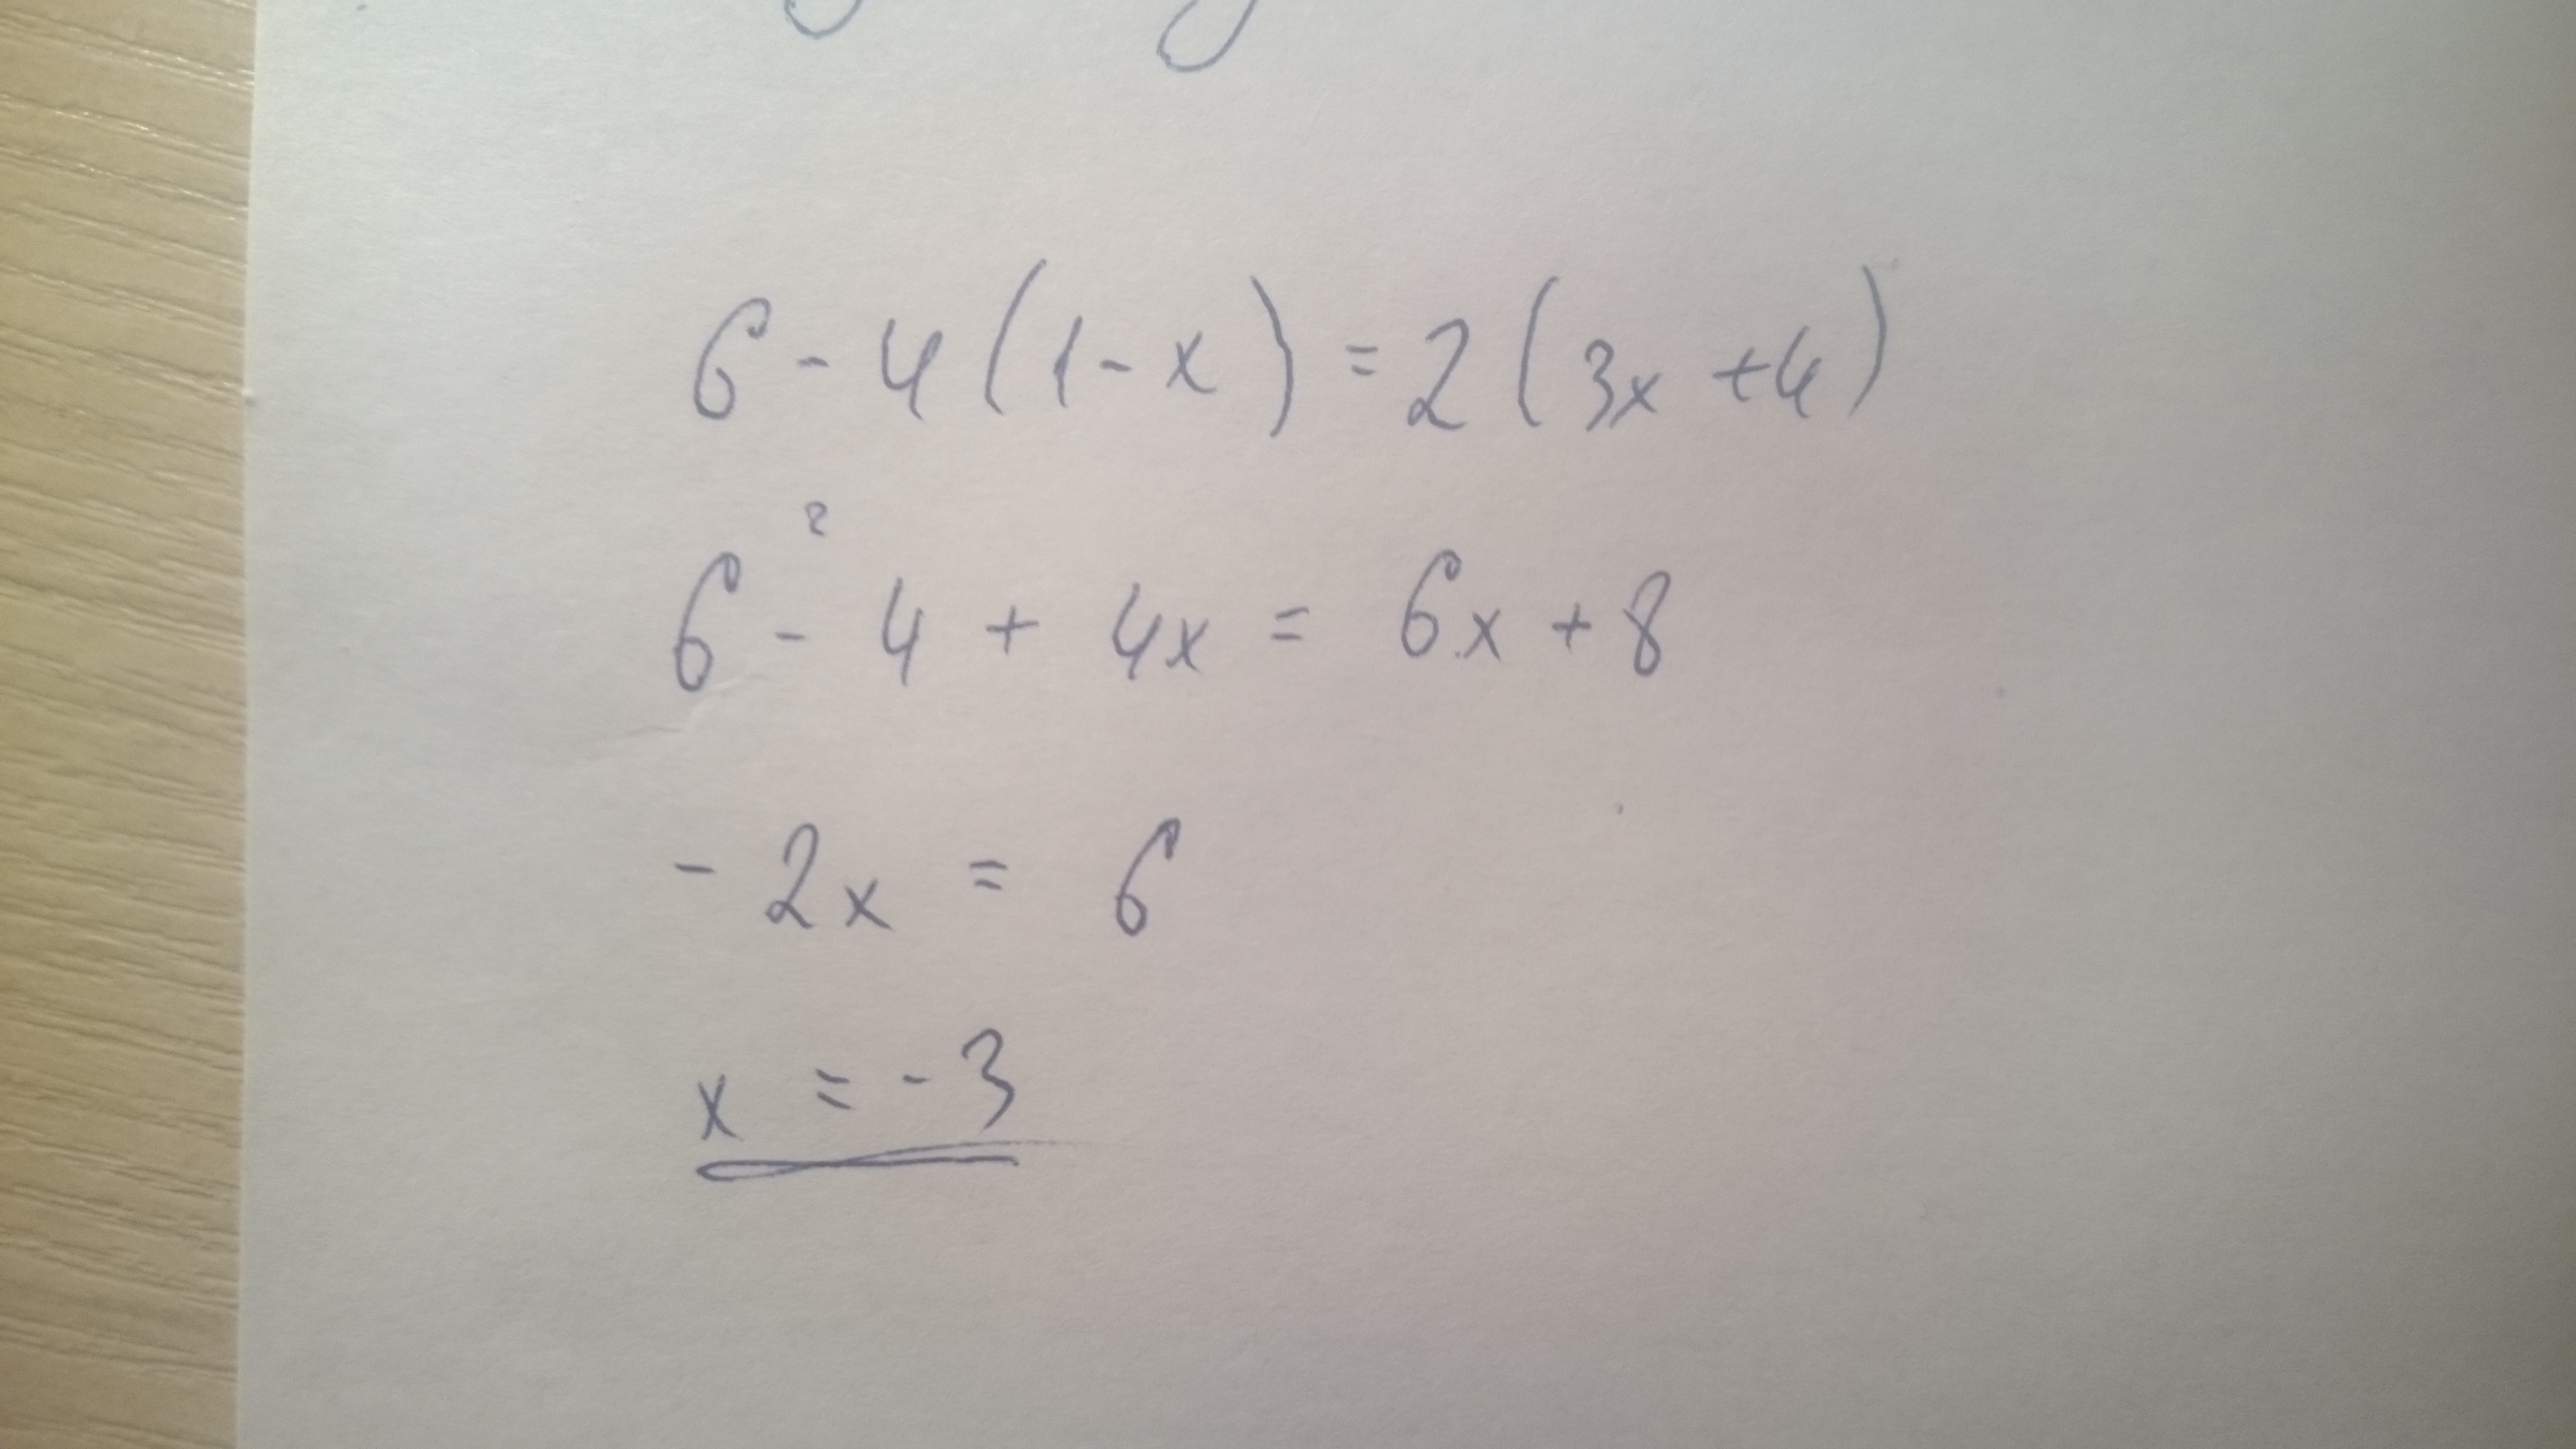 6 - 4 (1 - x) = 2 (3x + 4)
2
6 - 4 + 4x = 6x + 8
- 2x = 6
x = - 3